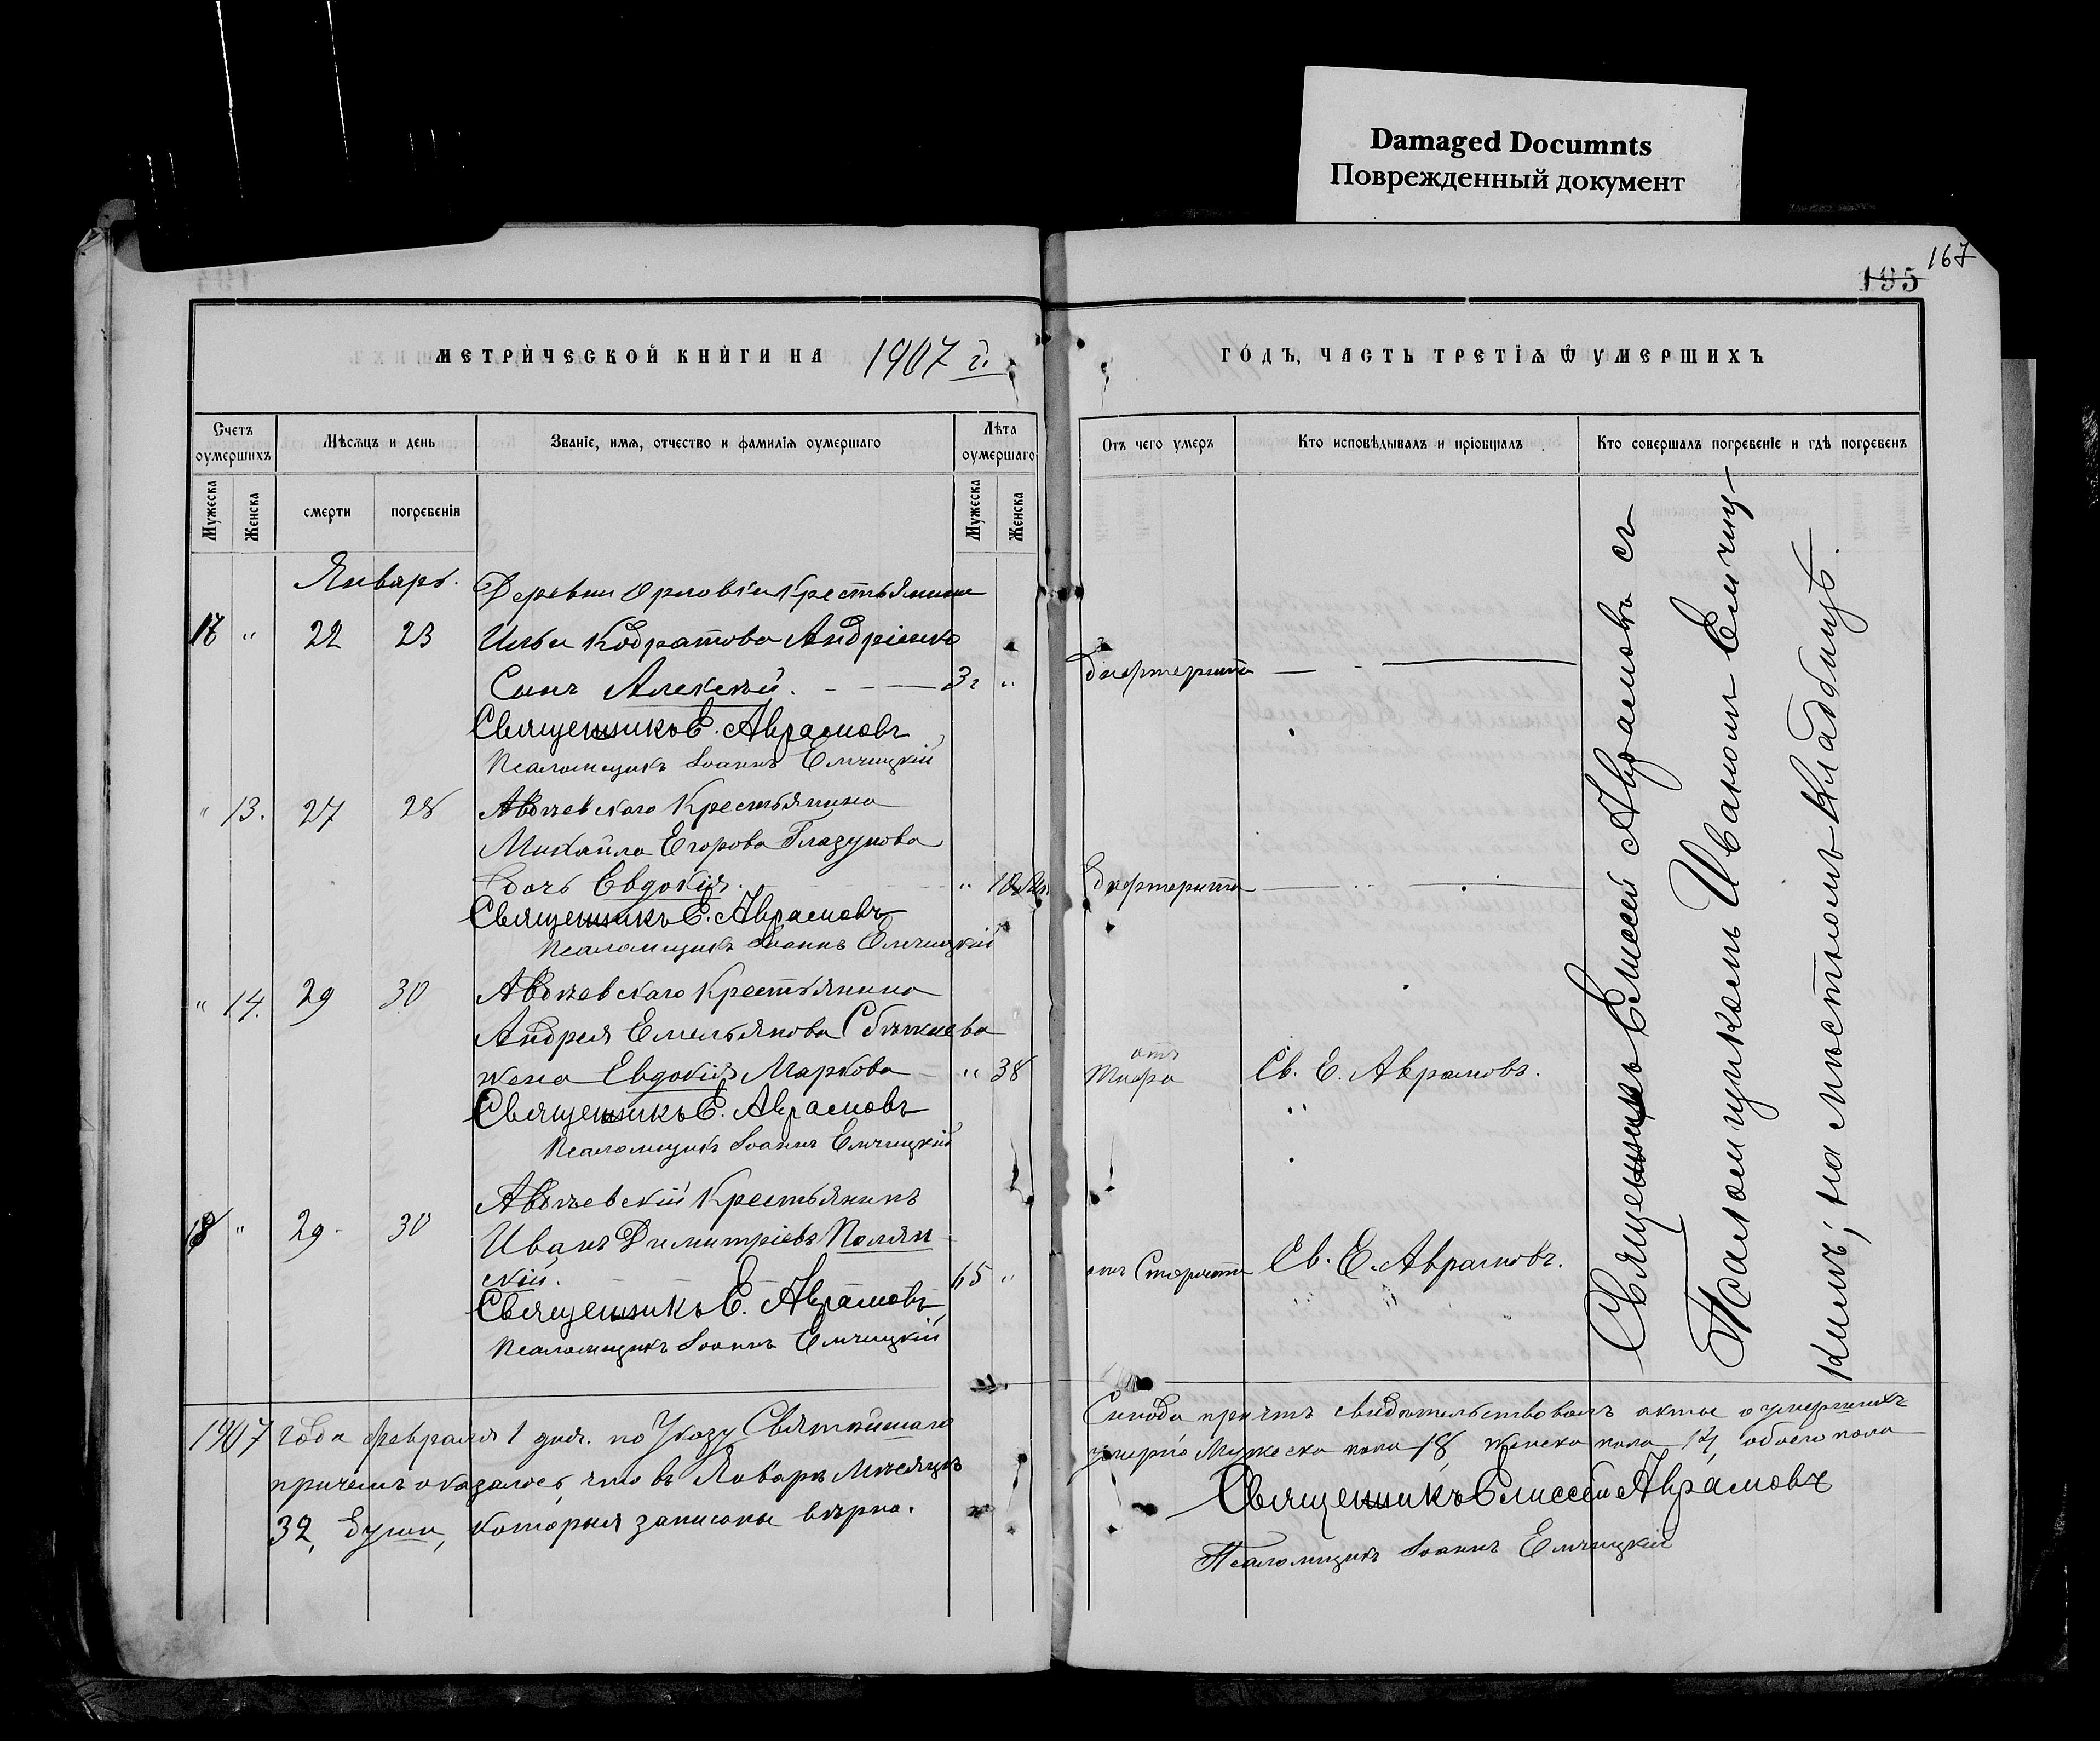 Damaged Documnts
Поврежденный документ
167
195
МЕТРИЧЕСКОЙ КНИГИ НА 1907 г.
ГОДЪ, ЧАСТЬ ТРЕТІѦ Ѿ УМЕРШИХЪ
Счетъ оумершихъ
Мѣсѧцъ и день
Званіе, имѧ, отчество и фамиліѧ оумершаго
Лѣта оумершаго
Отъ чего умеръ
Кто исповѣдывалъ и пріобщалъ
Кто совершалъ погребеніе и гдѣ погребенъ
Мужеска
Женска
смерти
погребенія
Мужеска
Женска
Январь.
Деревни Орловки Крестьянина
17 " 22 23 Ильи Кодратова Андріенко
Сынъ Алексѣй. 3 г "
дифтерита
Священникъ Е. Аврамовъ
Псаломщикъ Іоаннъ Емчицкій
" 13. 27 28 Авдѣевскаго Крестьянина
Михаила Егорова Глазунова
дочь Евдокія. " 10
дифтерита
Священникъ Е. Аврамовъ
Псаломщикъ Іоаннъ Емчицкій
" 14. 29 30 Авдѣевскаго Крестьянина
Андрея Емельянова
жена Евдокія Маркова " 38
отъ
тифа
Св. Е. Аврамовъ.
Священникъ Е. Аврамовъ
Псаломщикъ Іоаннъ Емчицкій
Авдѣевскій Крестьянинъ
18 " 29 30 Иванъ Димитріевъ Полян
скій. 65 "
отъ Старости
Св. Е. Аврамовъ.
Священникъ Е. Аврамовъ
Псаломщикъ Іоаннъ Емчицкій
Священникъ Елиссей Аврамовъ съ
Псаломщикомъ Иваномъ Емчиц-
кимъ; на мѣстномъ кладбищѣ.
1907 года февраля 1 дня. по Указу Святѣйшаго
Синода причтъ свидѣтельствовалъ акты о умершихъ
причемъ оказалось, что въ Январѣ Мѣсяцѣ
умерло Мужеска пола 18, женска пола 14, обоего пола
32, души, которыя записаны вѣрно.
Священникъ Елиссей Аврамовъ
Псаломщикъ Іоаннъ Емчицкій